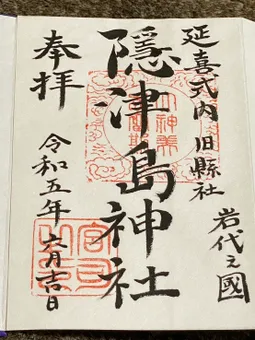 延喜式内 旧縣社
岩代之國
隠津島神社
奉拝
令和五年 六月吉日